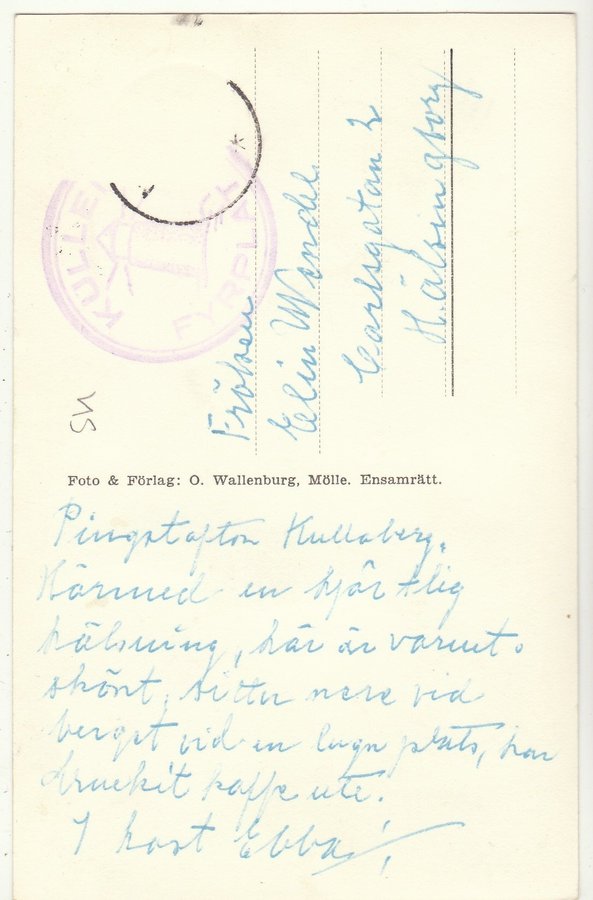 KULLENS FYRPLATS
Fröken
Elin Wendel.
Carlsgatan 2
Hälsingborg
SN
Foto & Förlag: O. Wallenburg, Mölle. Ensamrätt.
Pingstafton Kullaberg.
Härmed en hjärtlig
hälsning, här är varmt o
skönt, sitter nere vid
berget vid en lugn plats, har
druckit kaffe ute.
I hast Ebba!